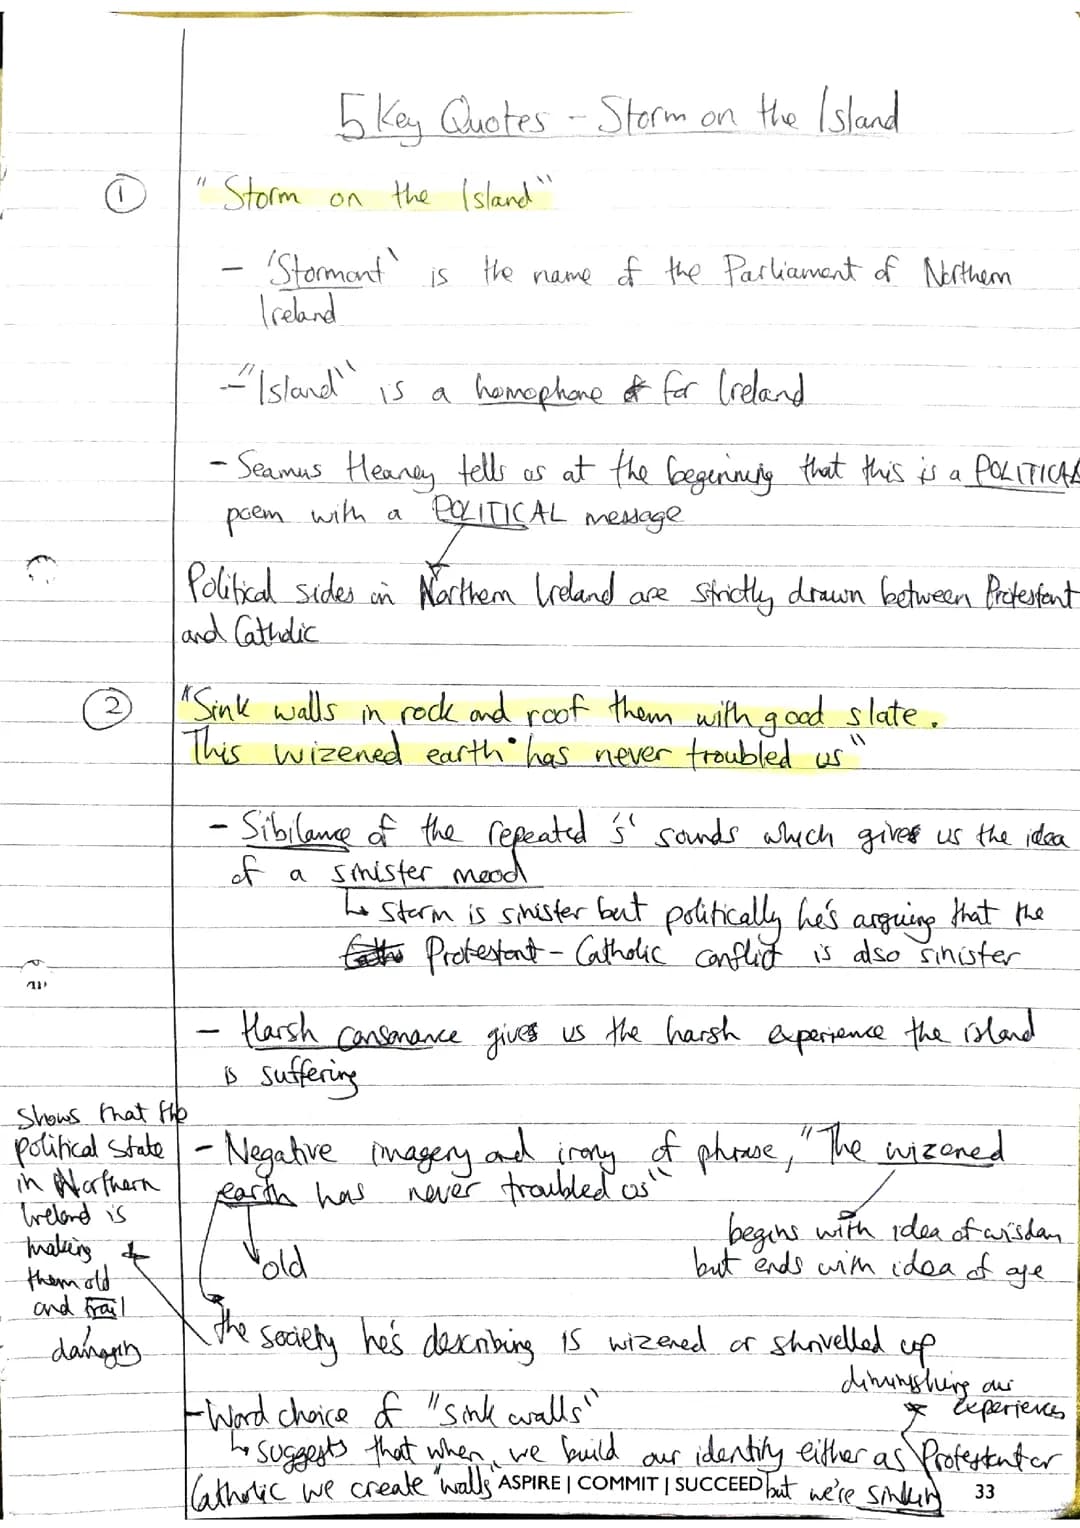 5 Key Quotes - Storm on the Island
① "Storm on the Island"
- 'Stormont' is the name of the Parliament of Northern
Ireland
- "Island" is a homophone for Ireland
- Seamus Heaney tells us at the beginning that this is a POLITICAL
poem with a POLITICAL message
Political sides in Northern Ireland are strictly drawn between Protestant
and Catholic
② "Sink walls in rock and roof them with good slate.
This wizened earth has never troubled us"
- Sibilance of the repeated 's' sounds which gives us the idea
of a sinister mood
↳ Storm is sinister but politically he's arguing that the
Protestant - Catholic conflict is also sinister
- Harsh consonance gives us the harsh experience the island
is suffering
Shows that the
political state
in Northern
Ireland is
making
them old
and frail
- Negative imagery and irony of phrase, "The wizened
earth has never troubled us"
begins with idea of wisdom
but ends with idea of age
old
the society he's describing is wizened or shrivelled up
diminishing our
experiences
- Word choice of "sink walls"
↳ suggests that when we build our identity either as Protestant or
Catholic we create "walls" but we're sinking
ASPIRE | COMMIT | SUCCEED
33